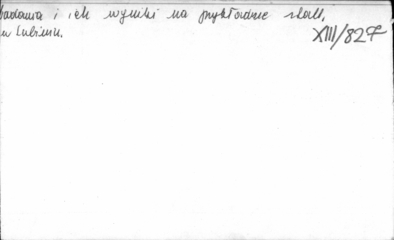 badania i ich wyniki na przykładzie skał,
w Lubiniu.
XIII/827